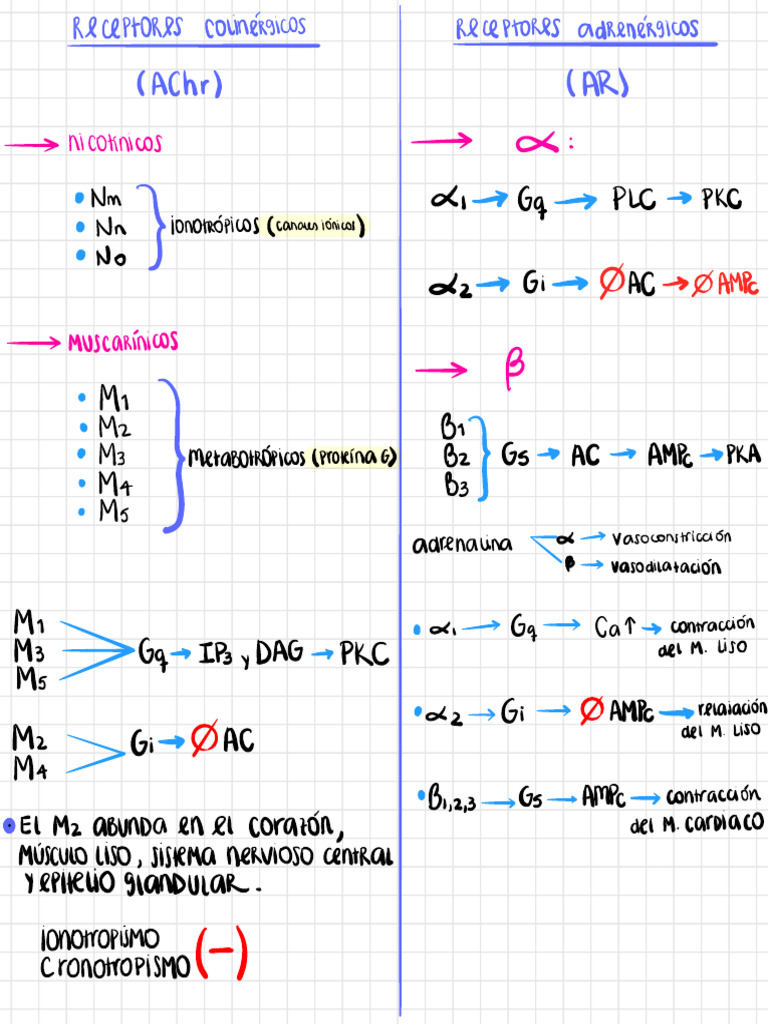 Receptores colinérgicos
(AChr)
→ nicotínicos
• Nm
• Nn
• No
ionotrópicos (canales iónicos)
→ Muscarínicos
• M1
• M2
• M3
• M4
• M5
metabotrópicos (proteína G)
M1
M3
M5
Gq → IP3 y DAG → PKC
M2
M4
Gi → Ø AC
• El M2 abunda en el corazón,
músculo liso, sistema nervioso central
y epitelio glandular.
ionotropismo
cronotropismo
(-)
Receptores adrenérgicos
(AR)
→ α:
α1 → Gq → PLC → PKC
α2 → Gi → Ø AC → Ø AMPc
→ β
B1
B2
B3
Gs → AC → AMPc → PKA
adrenalina
α → vasoconstricción
β → vasodilatación
• α1 → Gq → Ca↑ → contracción
del M. liso
• α2 → Gi → Ø AMPc → relajación
del M. liso
• B1,2,3 → Gs → AMPc → contracción
del M. cardiaco